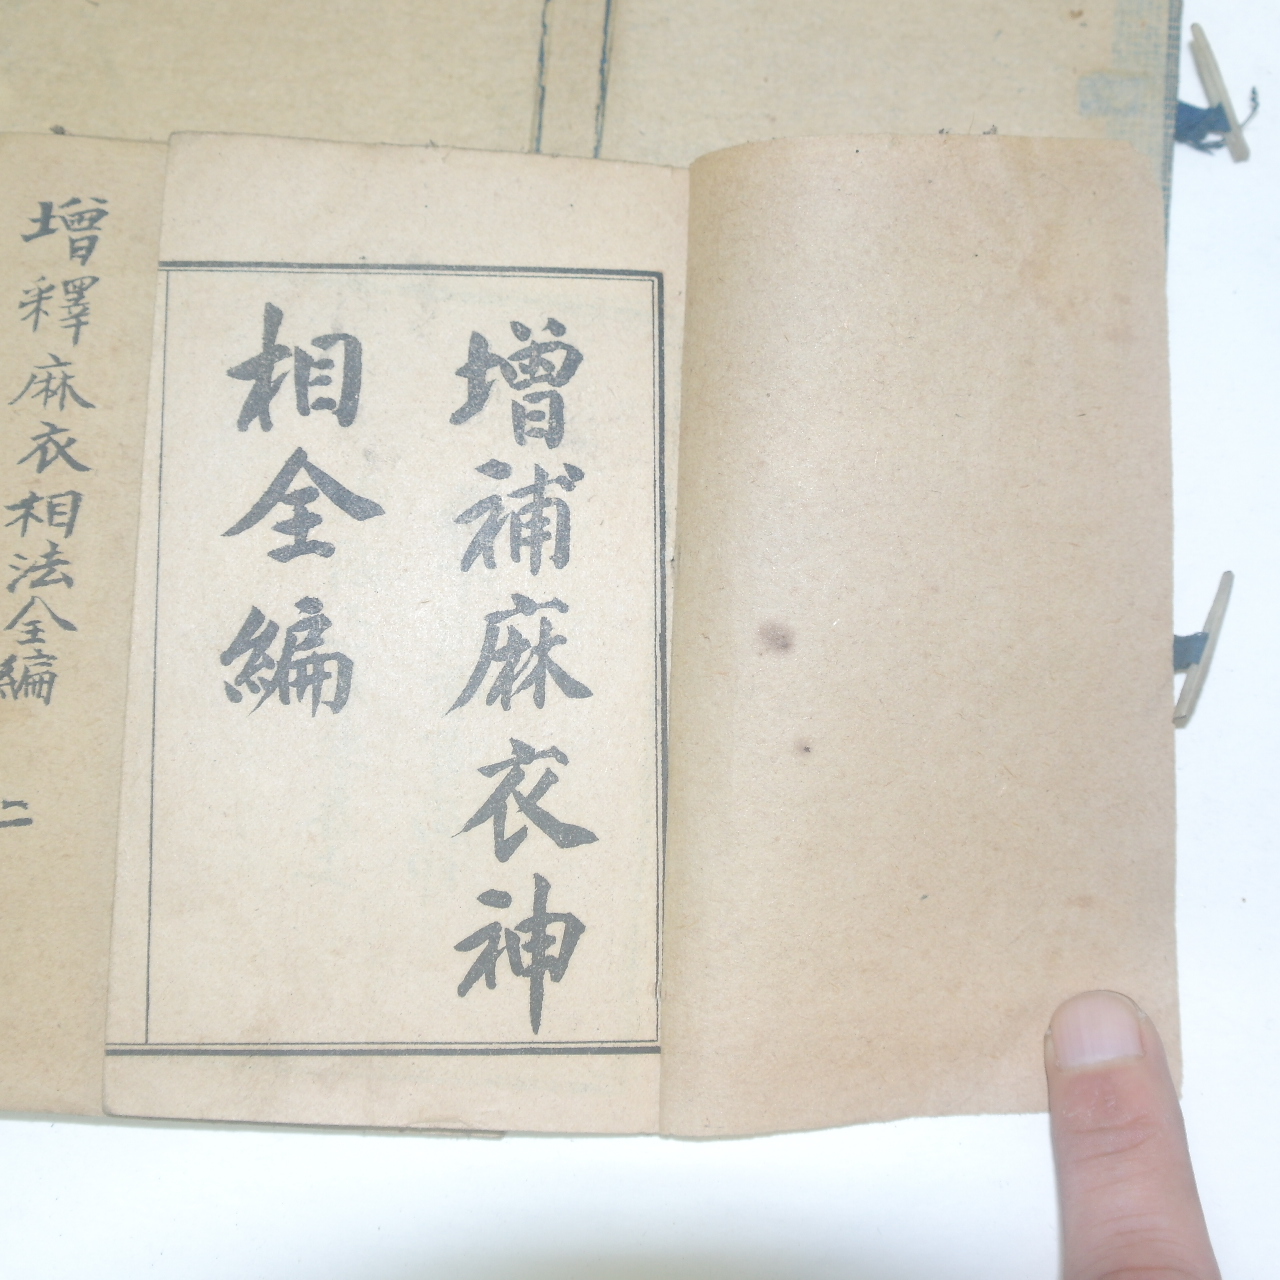 增補麻衣神
相全編
增釋麻衣相法全編 二